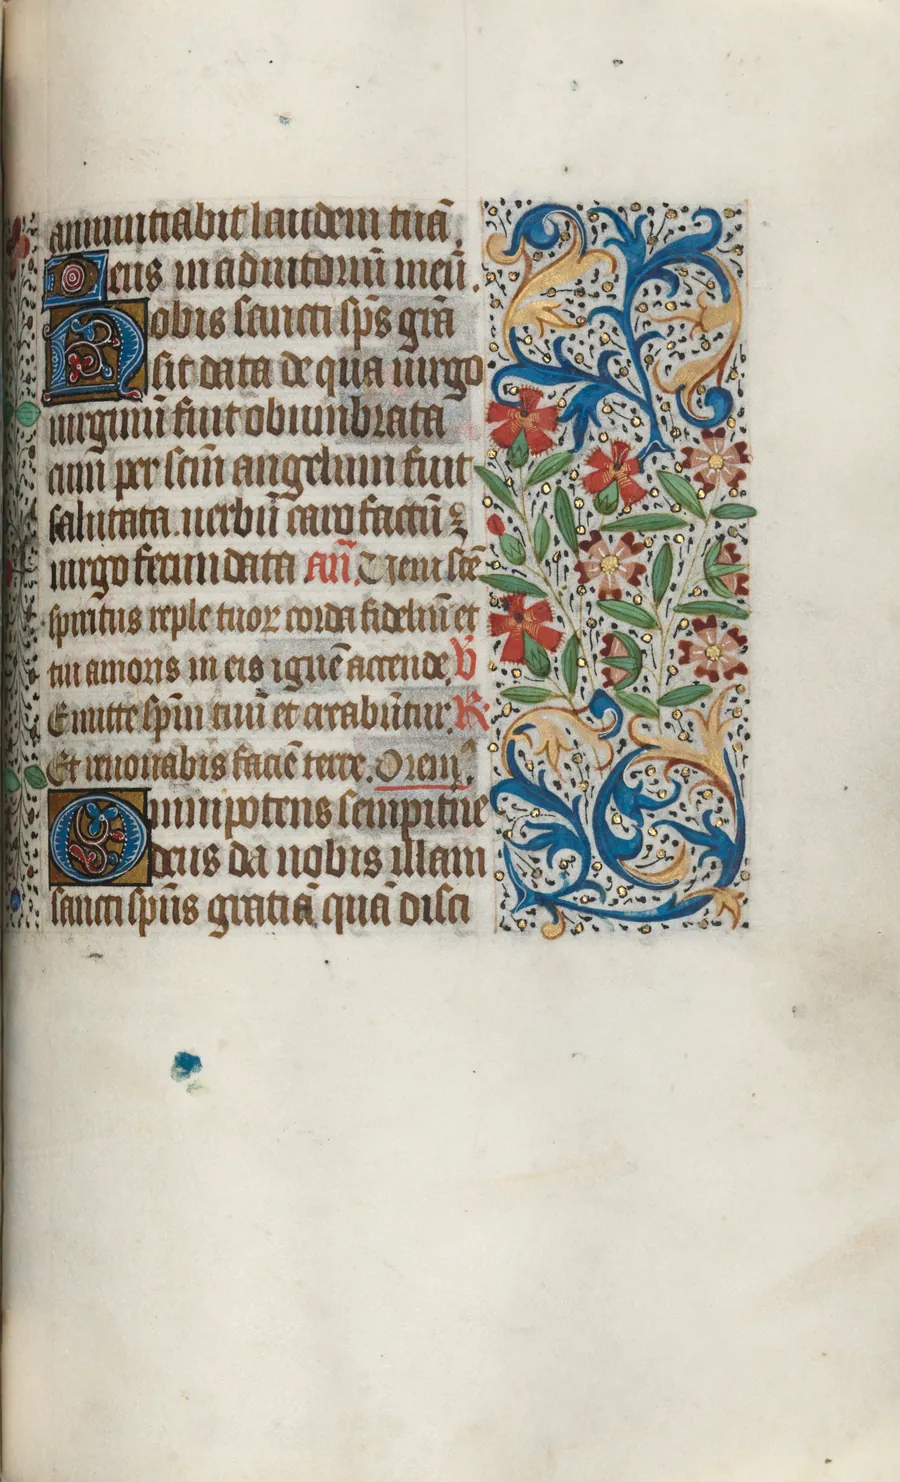 annuntiabit laudem tuā.
Deus in adiutoriū meū.
Nobis sancti sp̄s grā
sit data de qua uirgo
uirginū fuit obumbrata
cum per scm̄ angelum fuit
salutata uerbū caro factū ⁊
uirgo fecundata an̄. Ueni scē
spiritus reple tuoꝝ corda fideliū et
tui amoris in eis ignē accende. V̄
Emitte spm̄ tuū et creabūtur. R̄
Et renouabis faciē terre. Orem⁹.
Omnipotens sempitn̄e
deus da nobis illam
sancti sp̄us gratiā quā disci